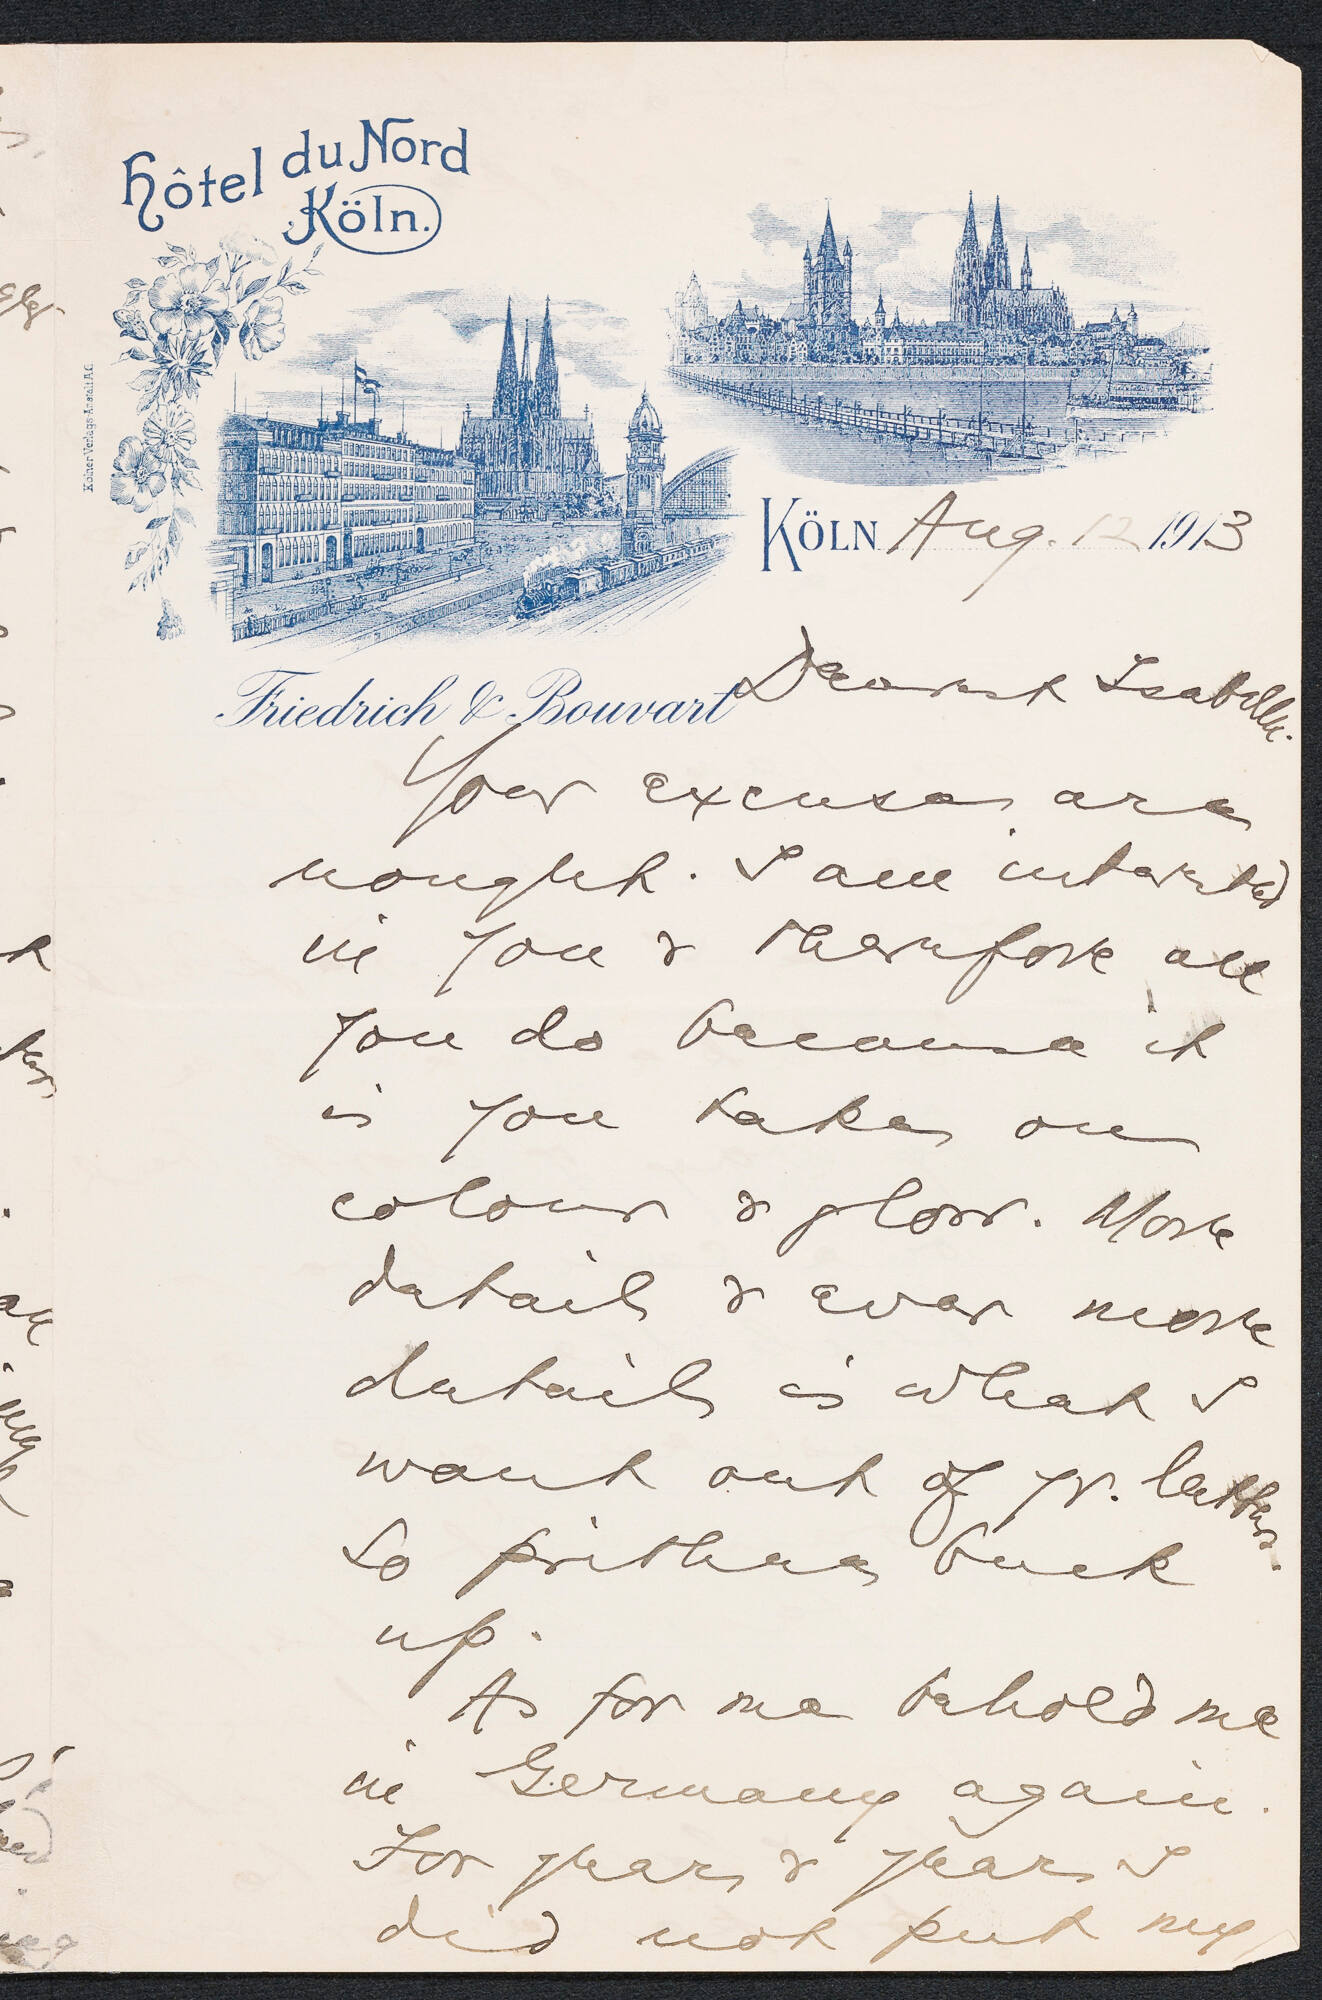 Hôtel du Nord
Köln.
Kölner Verlags-Anstalt A.G.
KÖLN Aug. 12 1913
Friedrich & Bouvart
Dearest Isabelle.
Your excuses are
nought. I am interested
in you & therefore all
you do because it
is you takes on
colour & glow. More
detail & ever more
details is what I
want out of yr. letters.
So prithee buck
up.
As for me behold me
in Germany again.
For years & years I
did not put my